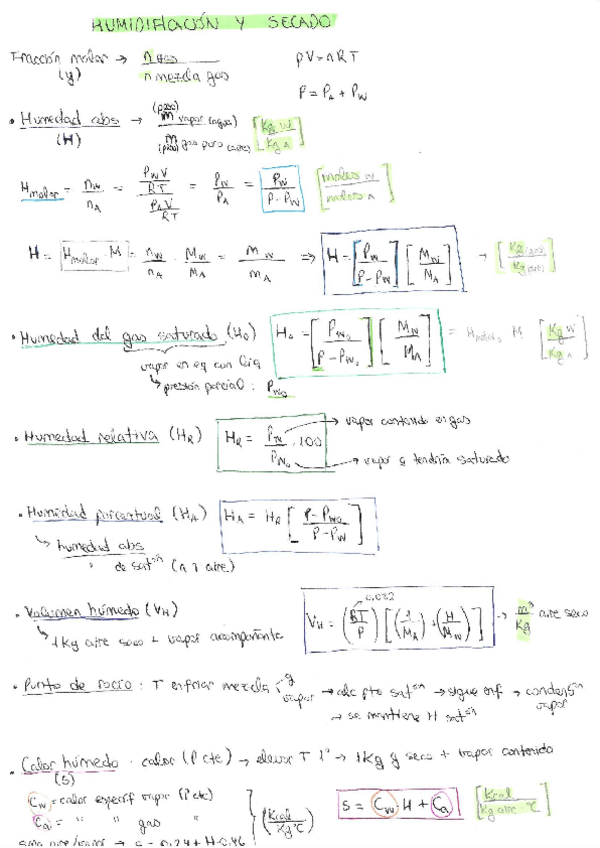 HUMIDIFIACIÓN Y SECADO
Fracción molar → n gas / n mezcla gas
(y)
pV = nRT
P = P_A + P_W
• Humedad abs → (peso) m vapor (agua) / m (peso) gas puro [Kg W / Kg A]
(H)
H molar = n_W / n_A = (P_W V / RT) / (P_A V / RT) = P_W / P_A = P_W / (P - P_W) [moles W / moles A]
H = H molar · M = n_W / n_A · M_W / M_A = m_W / m_A ⇒ H = [P_W / (P - P_W)] [M_W / M_A] → [Kg / Kg]
• Humedad del gas saturado (H₀) H₀ = [P_W₀ / (P - P_W₀)] [M_W / M_A] = H molar₀ M [Kg W / Kg A]
vapor en eq con liq
↳ presión parcial : P_W₀
• Humedad relativa (H_R) H_R = P_W / P_W₀ · 100
→ vapor contenido en gas
→ vapor q tendría saturado
• Humedad porcentual (H_A) H_A = H_R [(P - P_W₀) / (P - P_W)]
↳ humedad abs
" de satᵒⁿ (a T aire)
• Volumen húmedo (V_H) V_H = (RT / P) [(1 / M_A) + (H / M_W)] → m³ / Kg aire seco
0,082
↳ 1 Kg aire seco + vapor acompañante
• Punto de rocío : T enfriar mezcla g vapor → alc pto satᵒⁿ → sigue enf → condensᵒⁿ vapor
→ se mantiene H satᵒⁿ
• Calor húmedo · calor (P cte) → elevar T 1° → 1 Kg g seco + vapor contenido
(s)
C_W = calor específ vapor (P cte)
C_a = " " gas " } (Kcal / Kg °C)
s = C_W · H + C_a [Kcal / Kg aire · °C]
aire/vapor → s = 0,24 + H·0,46